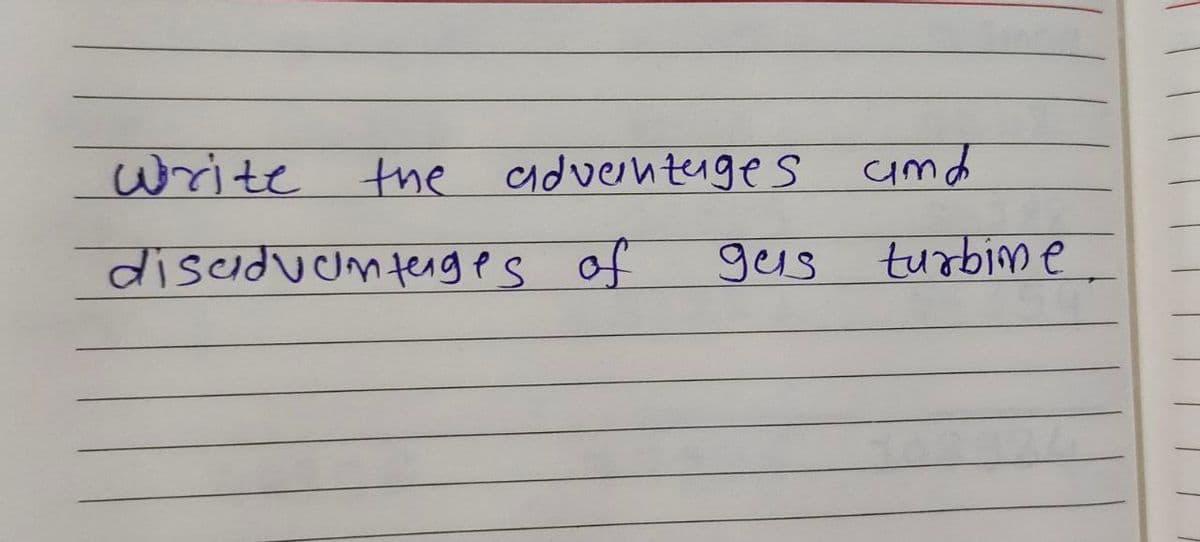 Write the advantages and
disadvantages of gas turbine.